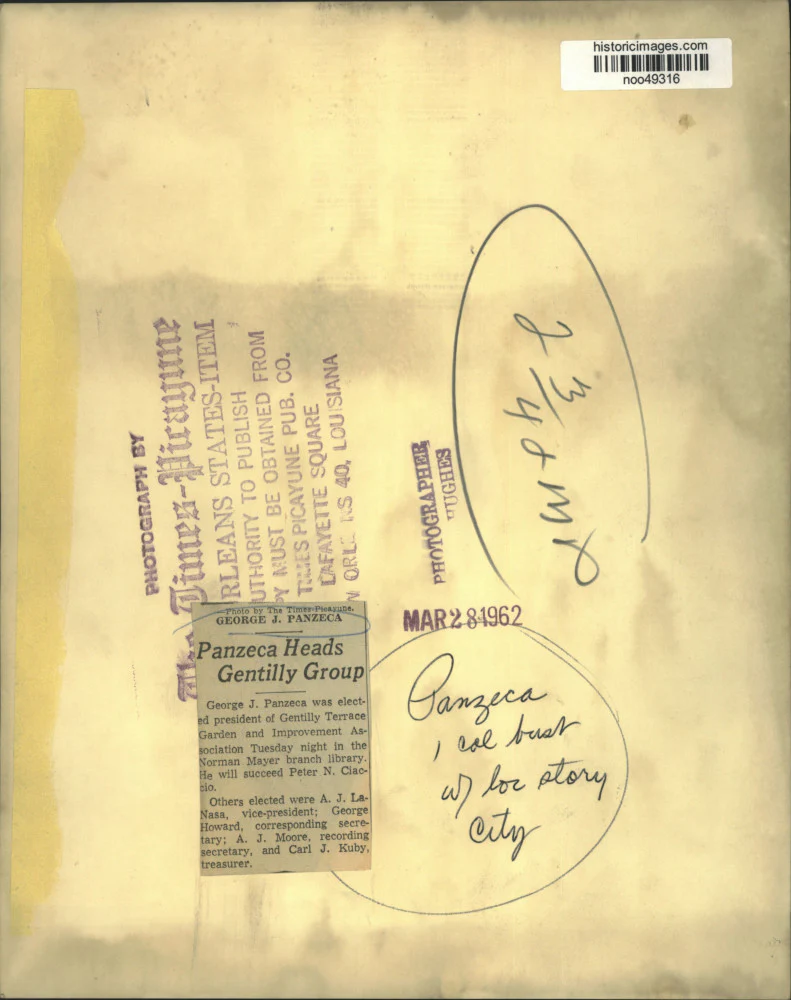 historicimages.com
noo49316
PHOTOGRAPH BY
The Times-Picayune
RLEANS STATES-ITEM
UTHORITY TO PUBLISH
Y MUST BE OBTAINED FROM
TIMES PICAYUNE PUB. CO.
LAFAYETTE SQUARE
W ORL NS 40, LOUISIANA
PHOTOGRAPHER
HUGHES
2 3/4
MAR 28 1962
Panzeca
1 col bust
w/ loc story
City
—Photo by The Times-Picayune.
GEORGE J. PANZECA
Panzeca Heads
Gentilly Group
George J. Panzeca was elect-
ed president of Gentilly Terrace
Garden and Improvement As-
sociation Tuesday night in the
Norman Mayer branch library.
He will succeed Peter N. Ciac-
cio.
Others elected were A. J. La-
Nasa, vice-president; George
Howard, corresponding secre-
tary; A. J. Moore, recording
secretary, and Carl J. Kuby,
treasurer.